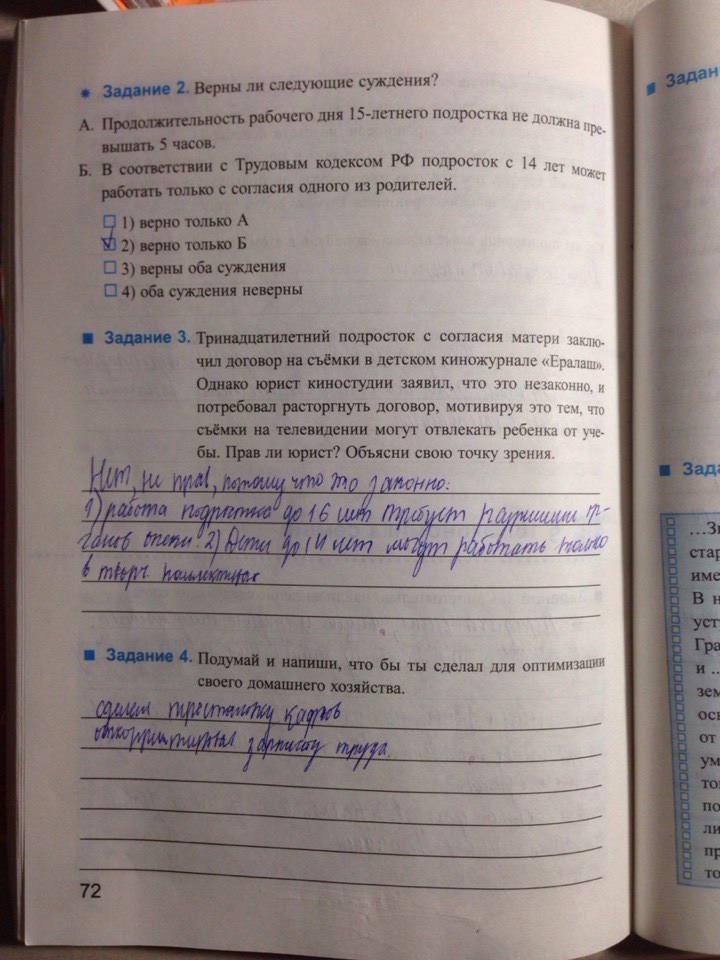 * Задание 2. Верны ли следующие суждения?
А. Продолжительность рабочего дня 15-летнего подростка не должна пре-
вышать 5 часов.
Б. В соответствии с Трудовым кодексом РФ подросток с 14 лет может
работать только с согласия одного из родителей.
1) верно только А
2) верно только Б
3) верны оба суждения
4) оба суждения неверны
Задание 3. Тринадцатилетний подросток с согласия матери заклю-
чил договор на съёмки в детском киножурнале «Ералаш».
Однако юрист киностудии заявил, что это незаконно, и
потребовал расторгнуть договор, мотивируя это тем, что
съёмки на телевидении могут отвлекать ребенка от уче-
бы. Прав ли юрист? Объясни свою точку зрения.
Нет, не прав, потому что это законно:
1) работа подростка до 16 лет требует разрешения ор-
ганов опеки. 2) Дети до 14 лет могут работать только
в творч. коллективах
Задание 4. Подумай и напиши, что бы ты сделал для оптимизации
своего домашнего хозяйства.
сделал перестановку кадров
зарплату труда.
72
Задан
Зада
...З
стар
име
В н
уст
Гра
и ...
зем
осн
от
ум
то
по
ли
пр
то